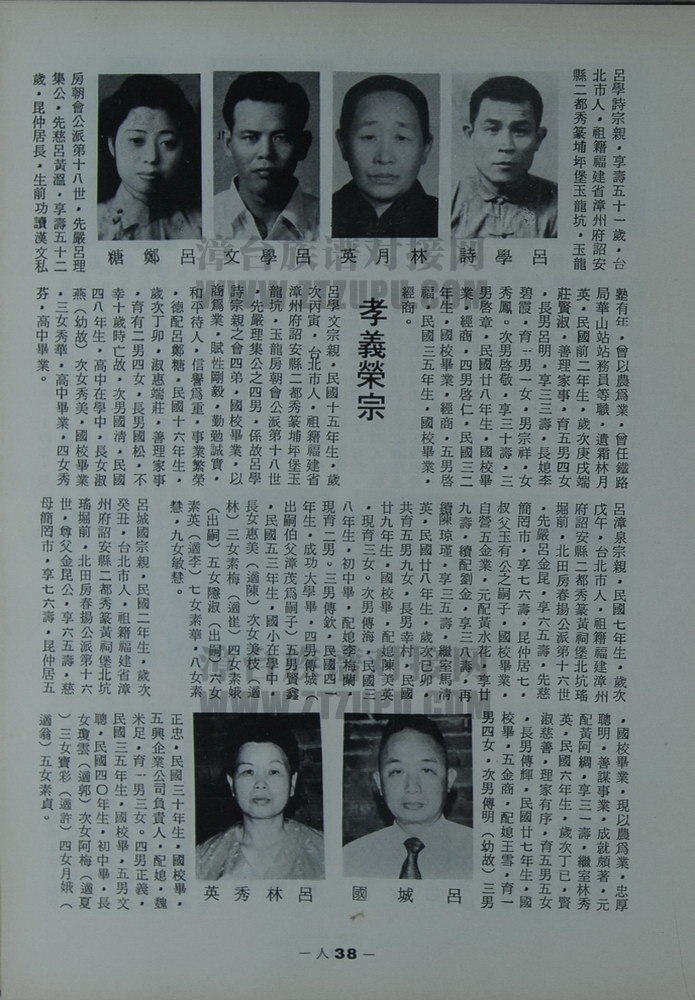 呂學詩宗親，享壽五十一歲，台
北市人，祖籍福建省漳州府詔安
縣二都秀篆埔坪堡玉龍坑，玉龍
呂學詩
林月英
呂學文
呂鄭糖
房朝會公派第十八世，先嚴呂理
集公，先慈呂黃溫，享壽五十二
歲，昆仲居長，生前功讀漢文私
塾有年，曾以農為業，曾任鐵路
局華山站站務員等職，遺霜林月
英，民國前二年生，歲次庚戌端
莊賢淑，善理家事，育五男四女
，長男呂明，享三三壽，長媳李
碧霞，育一男一女，男宗祥，女
秀鳳。次男啓敬，享三十壽，三
男啓章，民國廿八年生，國校畢
業，經商，四男啓仁，民國三二
年生，國校畢業，經商，五男啓
福，民國三五年生，國校畢業，
經商。
孝義榮宗
呂學文宗親，民國十五年生，歲
次丙寅，台北市人，祖籍福建省
漳州府詔安縣二都秀篆埔坪堡玉
龍坑，玉龍房朝會公派第十八世
，先嚴理集公之四男，係故呂學
詩宗親之會四弟，國校畢業，以
商為業，賦性剛毅，勤勉誠實，
和平待人，信譽為重，事業繁榮
，德配呂鄭糖，民國十六年生，
歲次丁卯，淑惠端莊，善理家事
，育有二男四女，長男國松，不
幸十歲時亡故，次男國清，民國
四八年生，高中在學中，長女淑
燕（幼故）次女秀美，國校畢業
，三女秀華，高中畢業，四女秀
芬，高中畢業。
呂漳泉宗親，民國七年生，歲次
戊午，台北市人，祖籍福建漳州
府詔安縣二都秀篆黃祠堡北坑瑤
堀前，北田房春揚公派第十六世
，先嚴呂金昆，享六五壽，先慈
簡罔市，享七六壽，昆仲居七，
叔父玉有公之嗣子，國校畢業，
自營五金業，元配黃水花，享廿
九壽，續配劉金，享三八壽，再
續陳琼瑾，享三五壽，繼室馬清
英，民國廿八年生，歲次已卯，
共育五男九女，長男幸村，民國
廿九年生，國校畢，配媳陳美英
，現育三女。次男傳海，民國三
八年生，初中畢，配媳李梅蘭，
現育二男。三男傳欽，民國四一
年生，成功大學畢，四男傳城（
出嗣伯父漳茂為嗣子）五男賢鑫
，民國五三年生，國小在學中，
長女惠美（適陳）次女美枝（適
林）三女素梅（適崔）四女素娥
（出嗣）五女隱淑（出嗣）六女
素英（適李）七女素華，八女素
慧，九女敏慧。
呂城國宗親，民國二年生，歲次
癸丑，台北市人，祖籍福建省漳
州府詔安縣二都秀篆黃祠堡北坑
瑤堀前，北田房春揚公派第十六
世，尊父金昆公，享六五壽，慈
母簡罔市，享七六壽，昆仲居五
，國校畢業，現以農為業，忠厚
聰明，善謀事業，成就頗著，元
配黃阿綢，享三一壽，繼室林秀
英，民國六年生，歲次丁巳，賢
淑慈善，理家有序，育五男五女
，長男傳輝，民國廿七年生，國
校畢，五金商，配媳王雪，育一
男四女，次男傳明（幼故）三男
呂城國
呂林秀英
正忠，民國三十年生，國校畢，
五興企業公司負責人，配媳，魏
米足，育一男三女。四男正義，
民國三五年生，國校畢，五男文
聰，民國四〇年生，初中畢，長
女瓊雲（適郭）次女阿梅（適夏
）三女寶彩（適許）四女月娥（
適翁）五女素貞。
—人38—
漳台族谱对接网
WWW.ZTZUPU.COM
漳台族谱对接网
WWW.ZTZUPU.COM